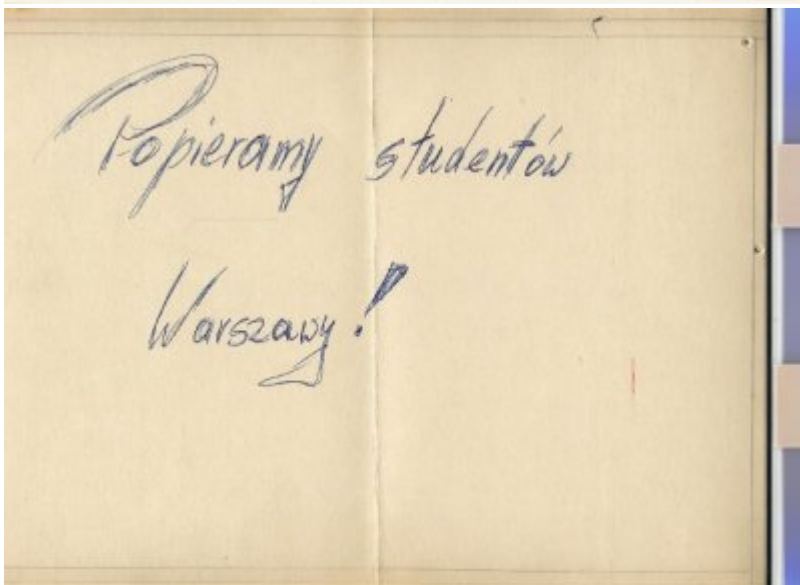 Popieramy studentów
Warszawy!